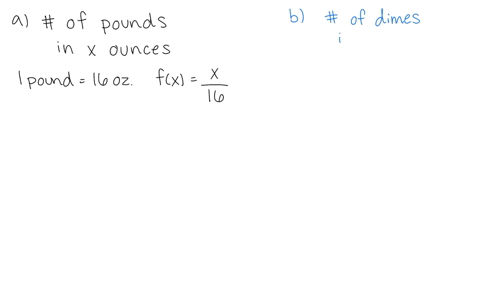 a) # of pounds
in x ounces
1 pound = 16 oz. f(x) = x/16
b) # of dimes
i